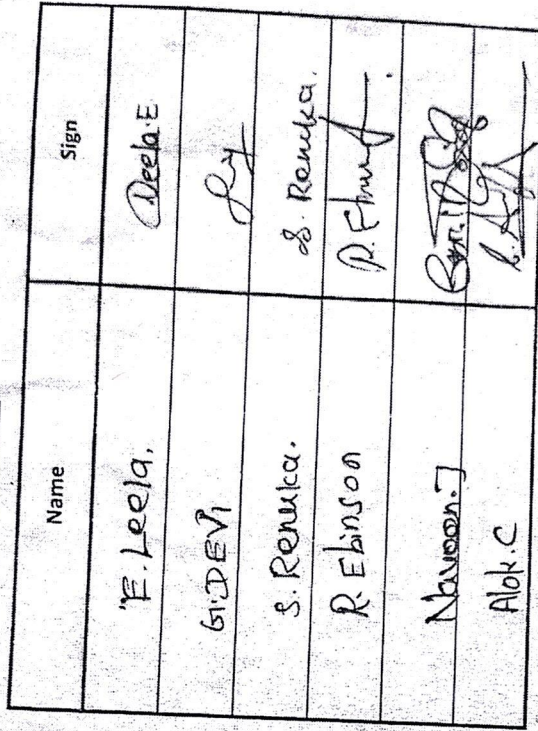 Name Sign
E. Leela. Deela.E
G.DEVI
S. Renuka. S. Renuka.
R. Ebinson
Naveen.J
Alok.C